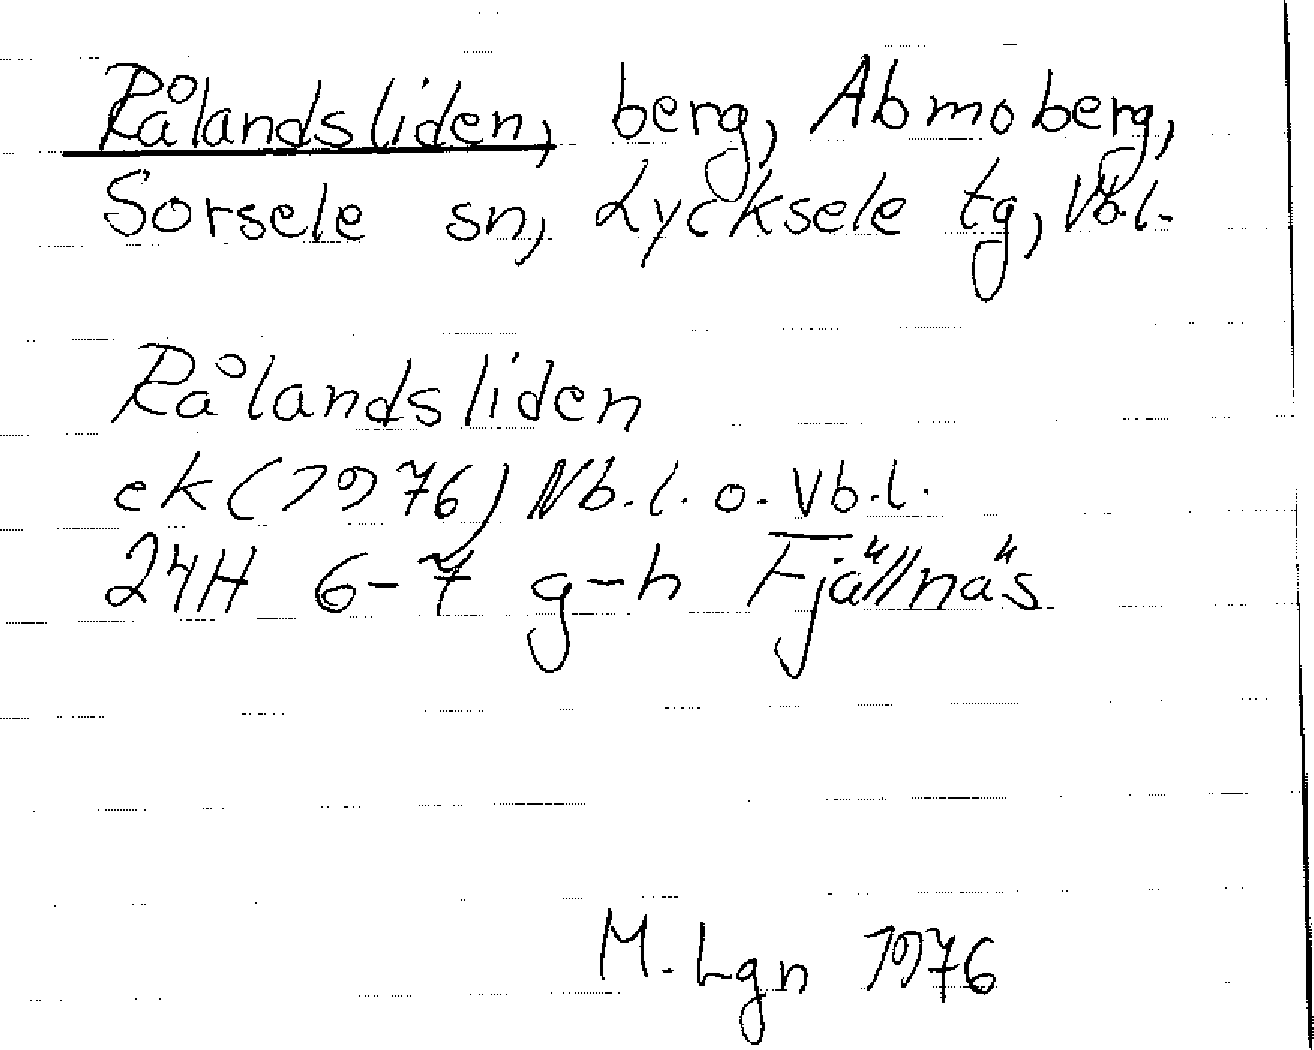 Rålandsliden, berg, Abmoberg,
Sorsele sn, Lycksele tg, Vb.l.
Rålandsliden
ek (1976) Nb.l. o. Vb.l.
24H 6-7 g-h Fjällnäs
M. Lgn 1976